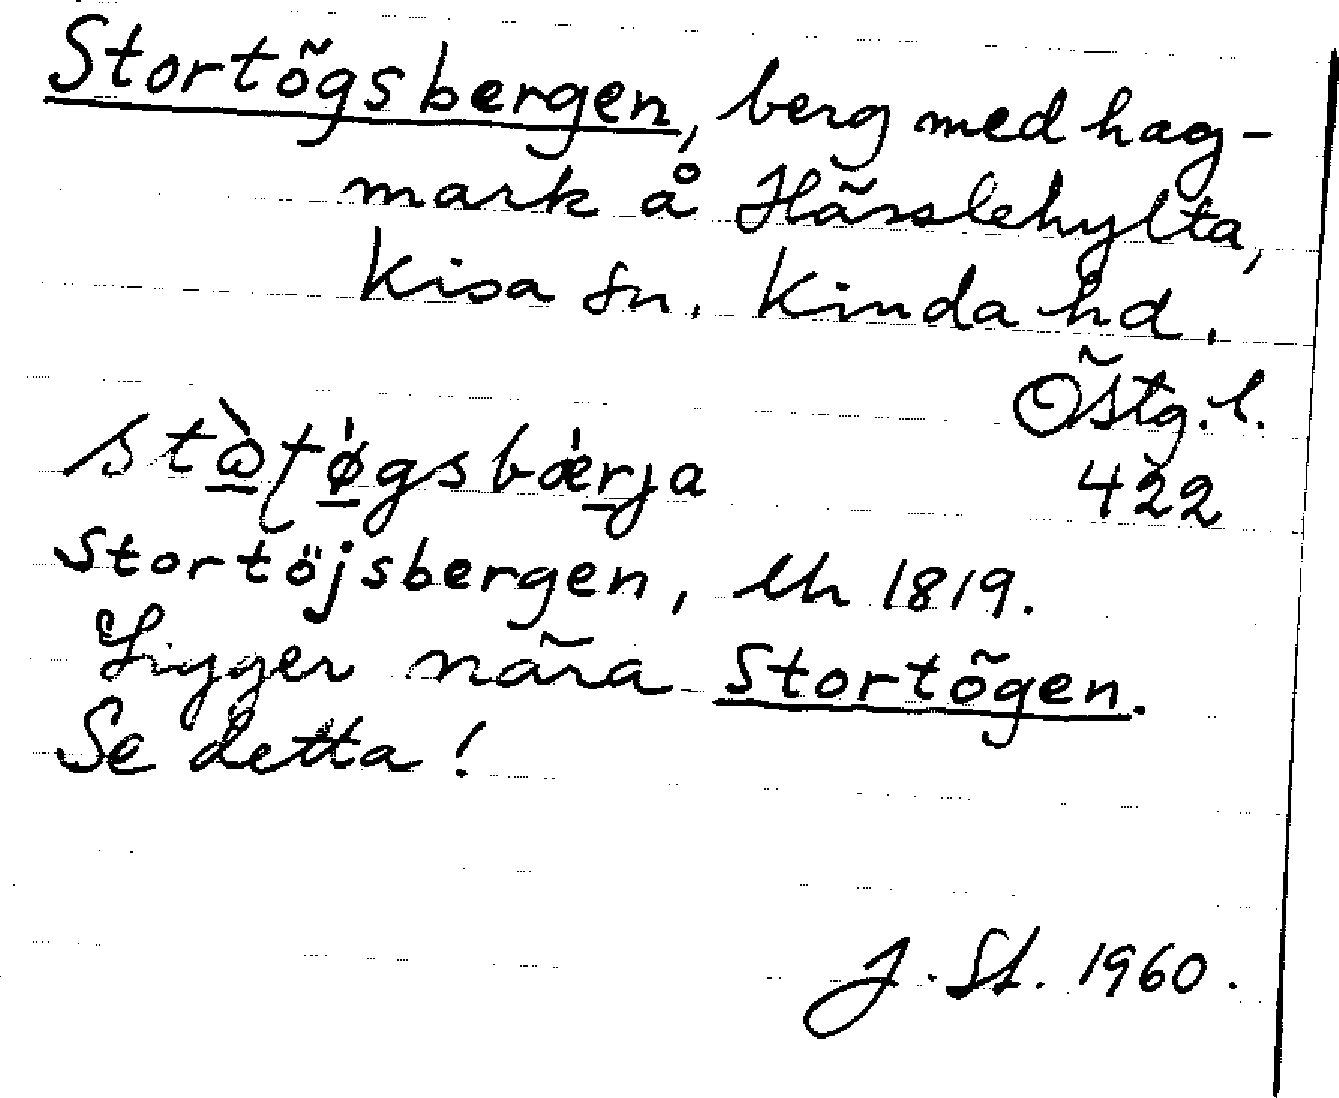 Stortögsbergen, berg med hag-
mark å Hässlehylta,
Kisa sn. Kinda hd.
Östg. l.
422
Stortöjsbergen, Uh 1819.
Ligger nära Stortögen.
Se detta!
J. St. 1960.